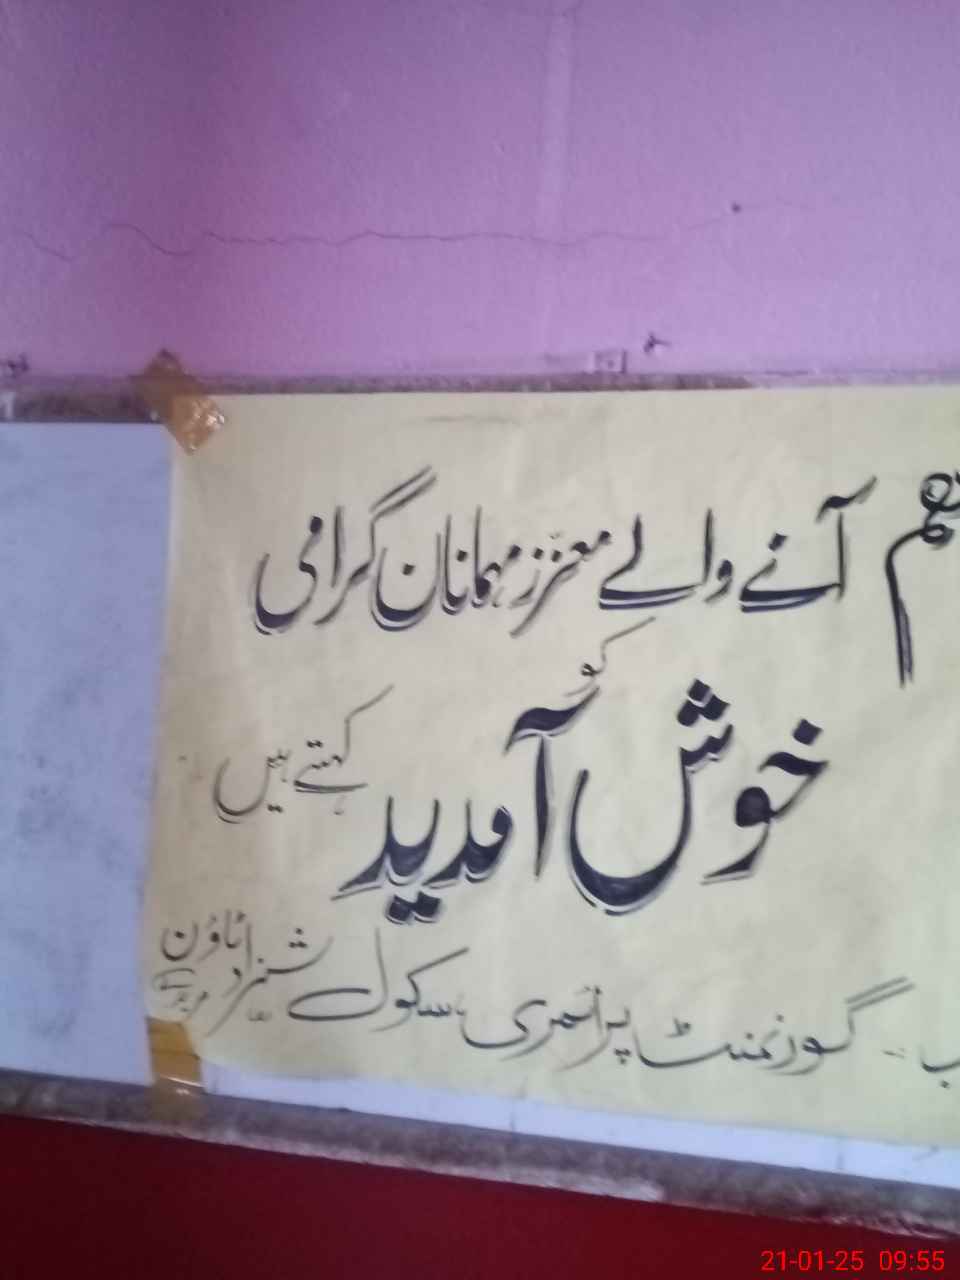 ہم آنے والے معزز مہمانان گرامی
کو
خوش آمدید کہتے ہیں
گورنمنٹ پرائمری سکول شہزاد ٹاؤن
21-01-25 09:55